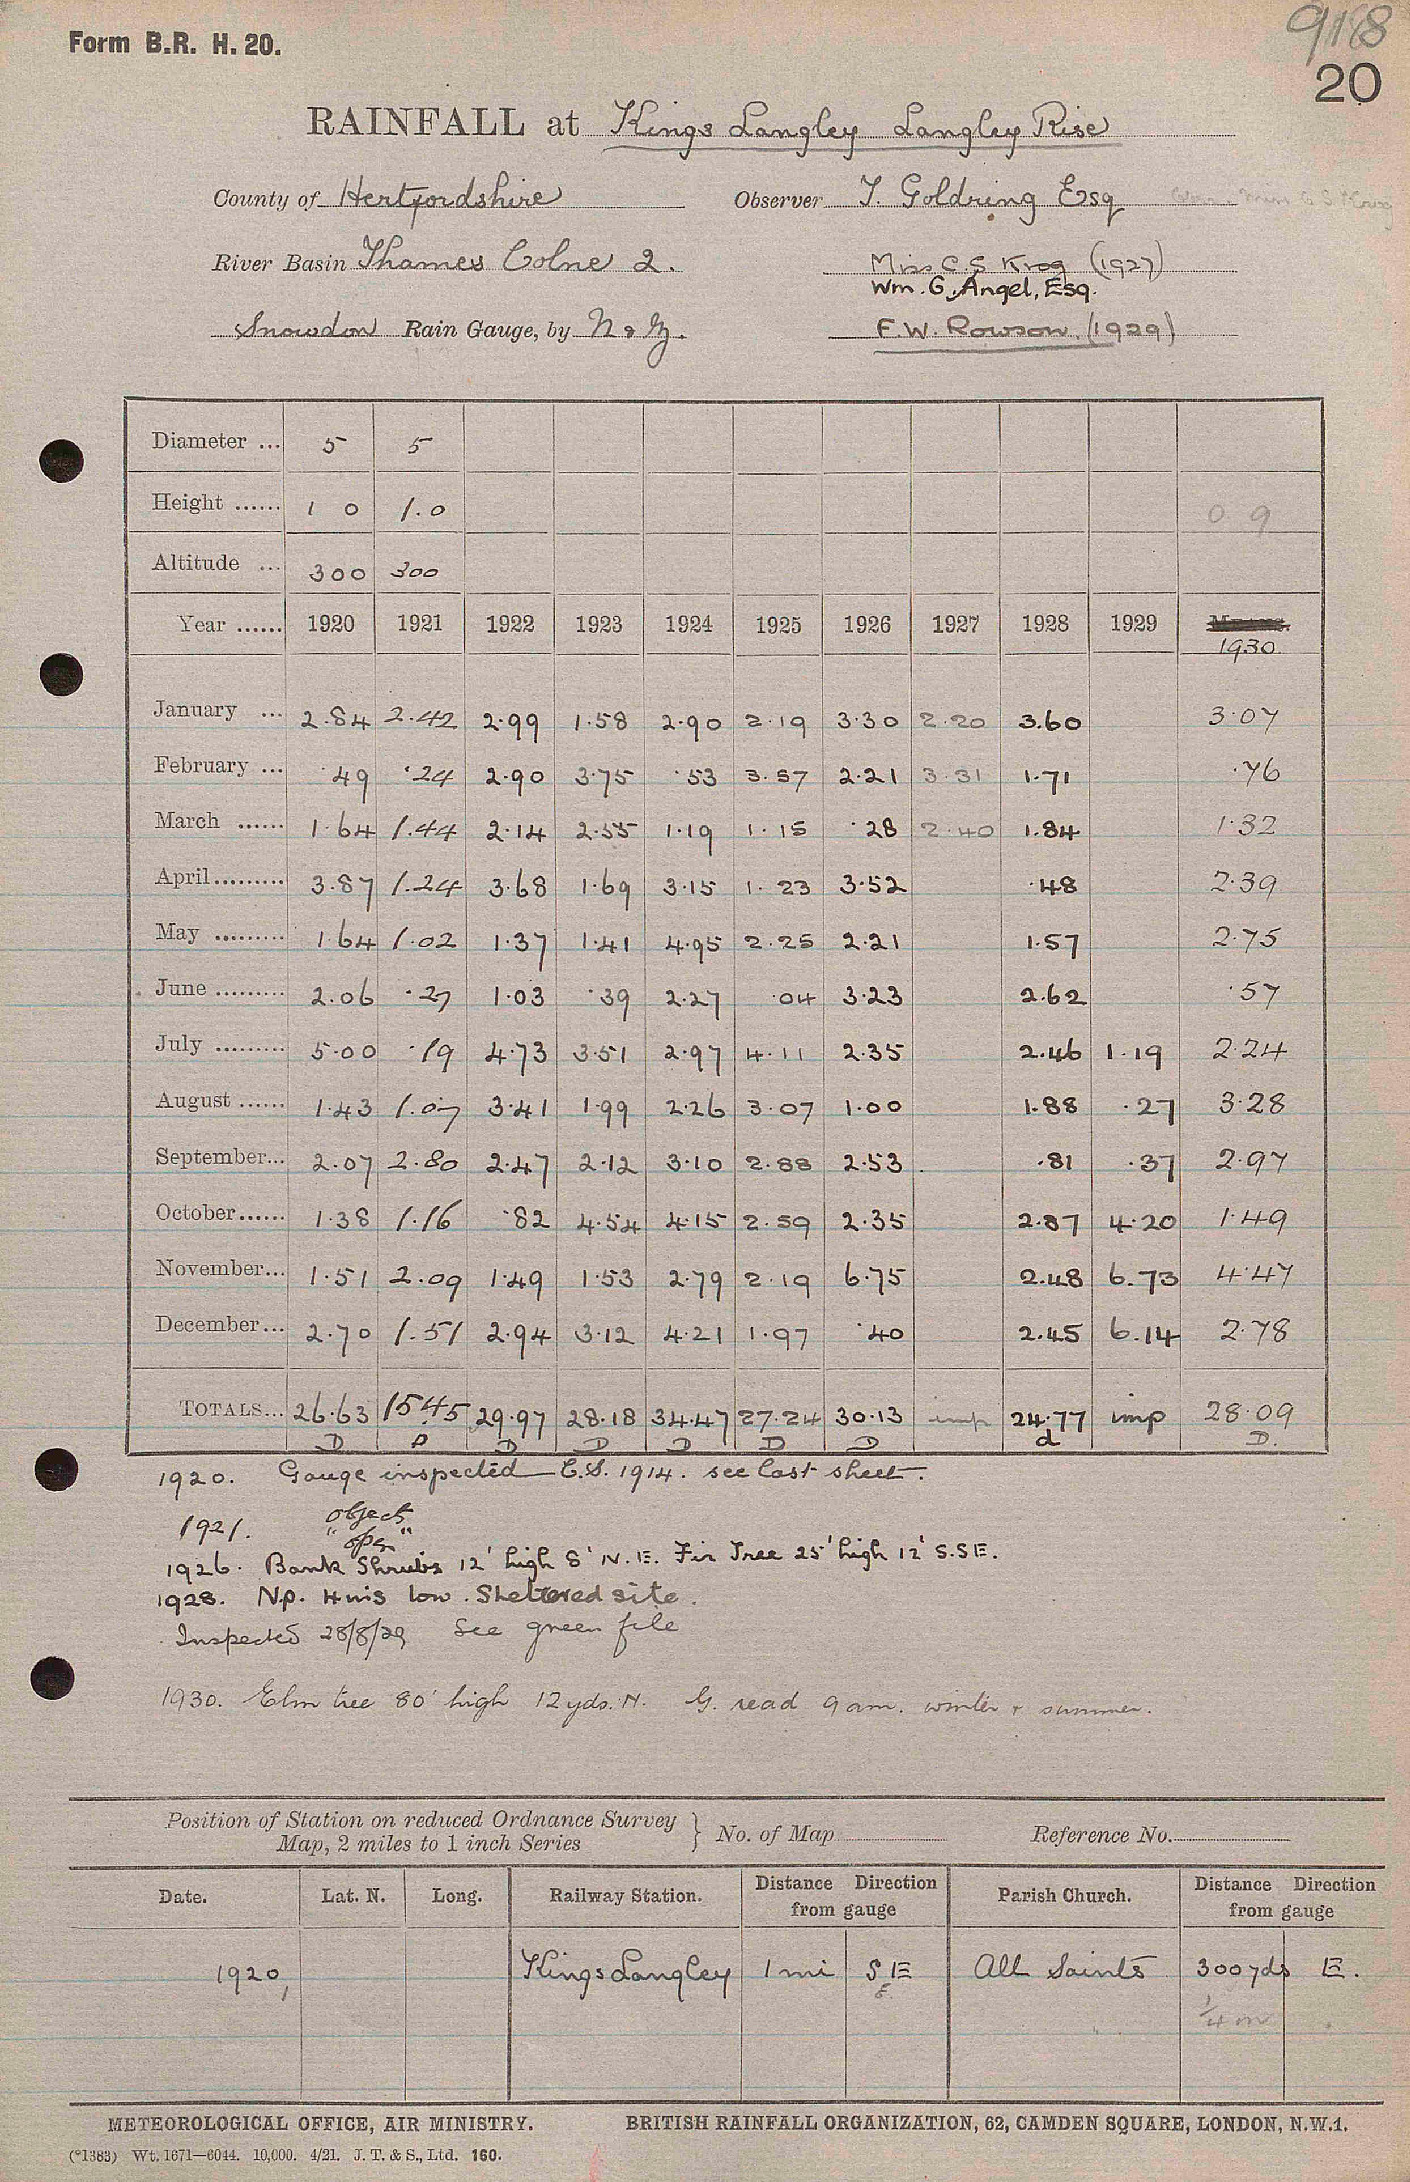 Form B.R. H. 20.
9118
20
RAINFALL at Kings Langley Langley Rise
County of Hertfordshire Observer T. Goldring Esq
River Basin Thames Colne 2. Miss C S Krog (1927)
Wm. G. Angel, Esq.
Snowdon Rain Gauge, by N & Z. F.W. Rowson (1929)
Diameter ... 5 5
Height ...... 1 0 1.0 0 9
Altitude ... 300 300
Year ...... 1920 1921 1922 1923 1924 1925 1926 1927 1928 1929 1930
January ... 2.84 2.42 2.99 1.58 2.90 2.19 3.30 2.20 3.60 3.07
February ... .49 .24 2.90 3.75 .53 3.57 2.21 3.31 1.71 .76
March ...... 1.64 1.44 2.14 2.55 1.19 1.15 .28 2.40 1.84 1.32
April......... 3.87 1.24 3.68 1.69 3.15 1.23 3.52 .48 2.39
May ......... 1.64 1.02 1.37 1.41 4.95 2.25 2.21 1.57 2.75
June ......... 2.06 .27 1.03 .39 2.27 .04 3.23 2.62 .57
July ......... 5.00 .19 4.73 3.51 2.97 4.11 2.35 2.46 1.19 2.24
August ...... 1.43 1.07 3.41 1.99 2.26 3.07 1.00 1.88 .27 3.28
September... 2.07 2.80 2.47 2.12 3.10 2.88 2.53 .81 .37 2.97
October...... 1.38 1.16 .82 4.54 4.15 2.59 2.35 2.87 4.20 1.49
November... 1.51 2.09 1.49 1.53 2.79 2.19 6.75 2.48 6.73 4.47
December... 2.70 1.51 2.94 3.12 4.21 1.97 .40 2.45 6.14 2.78
TOTALS... 26.63 15.45 29.97 28.18 34.47 27.24 30.13 imp 24.77 imp 28.09
D D D D D D D d D.
1920. Gauge inspected C.S. 1914. see last sheet.
1921. object
"open"
1926. Bank Shrubs 12' high 8' N.E. Fir Tree 25' high 12' S.SE.
1928. Np. Huis low. Sheltered site.
Inspected 28/8/29 See green file
1930. Elm tree 80' high 12 yds. N. G. read 9 am. winter & summer.
Position of Station on reduced Ordnance Survey
Map, 2 miles to 1 inch Series } No. of Map Reference No.
Date. Lat. N. Long. Railway Station. Distance Direction from gauge Parish Church. Distance Direction from gauge
1920, Kings Langley 1 mi S E All Saints 300 yds E.
E 1/4 m
METEOROLOGICAL OFFICE, AIR MINISTRY. BRITISH RAINFALL ORGANIZATION, 62, CAMDEN SQUARE, LONDON, N.W.1.
(*1383) Wt. 1671—6044. 10,000. 4/21. J. T. & S., Ltd. 160.